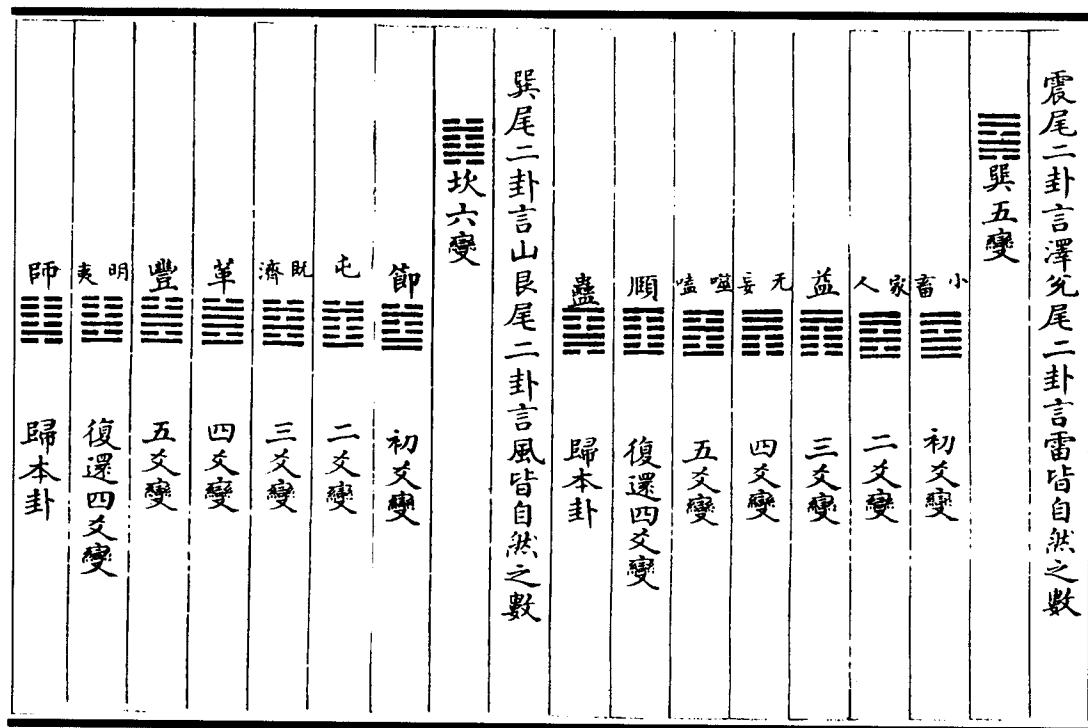 震尾二卦言澤兌尾二卦言雷皆自然之數
巽五變
小畜 初爻變
家人 二爻變
益 三爻變
无妄 四爻變
噬嗑 五爻變
頤 復還四爻變
蠱 歸本卦
巽尾二卦言山艮尾二卦言風皆自然之數
坎六變
節 初爻變
屯 二爻變
既濟 三爻變
革 四爻變
豐 五爻變
明夷 復還四爻變
師 歸本卦